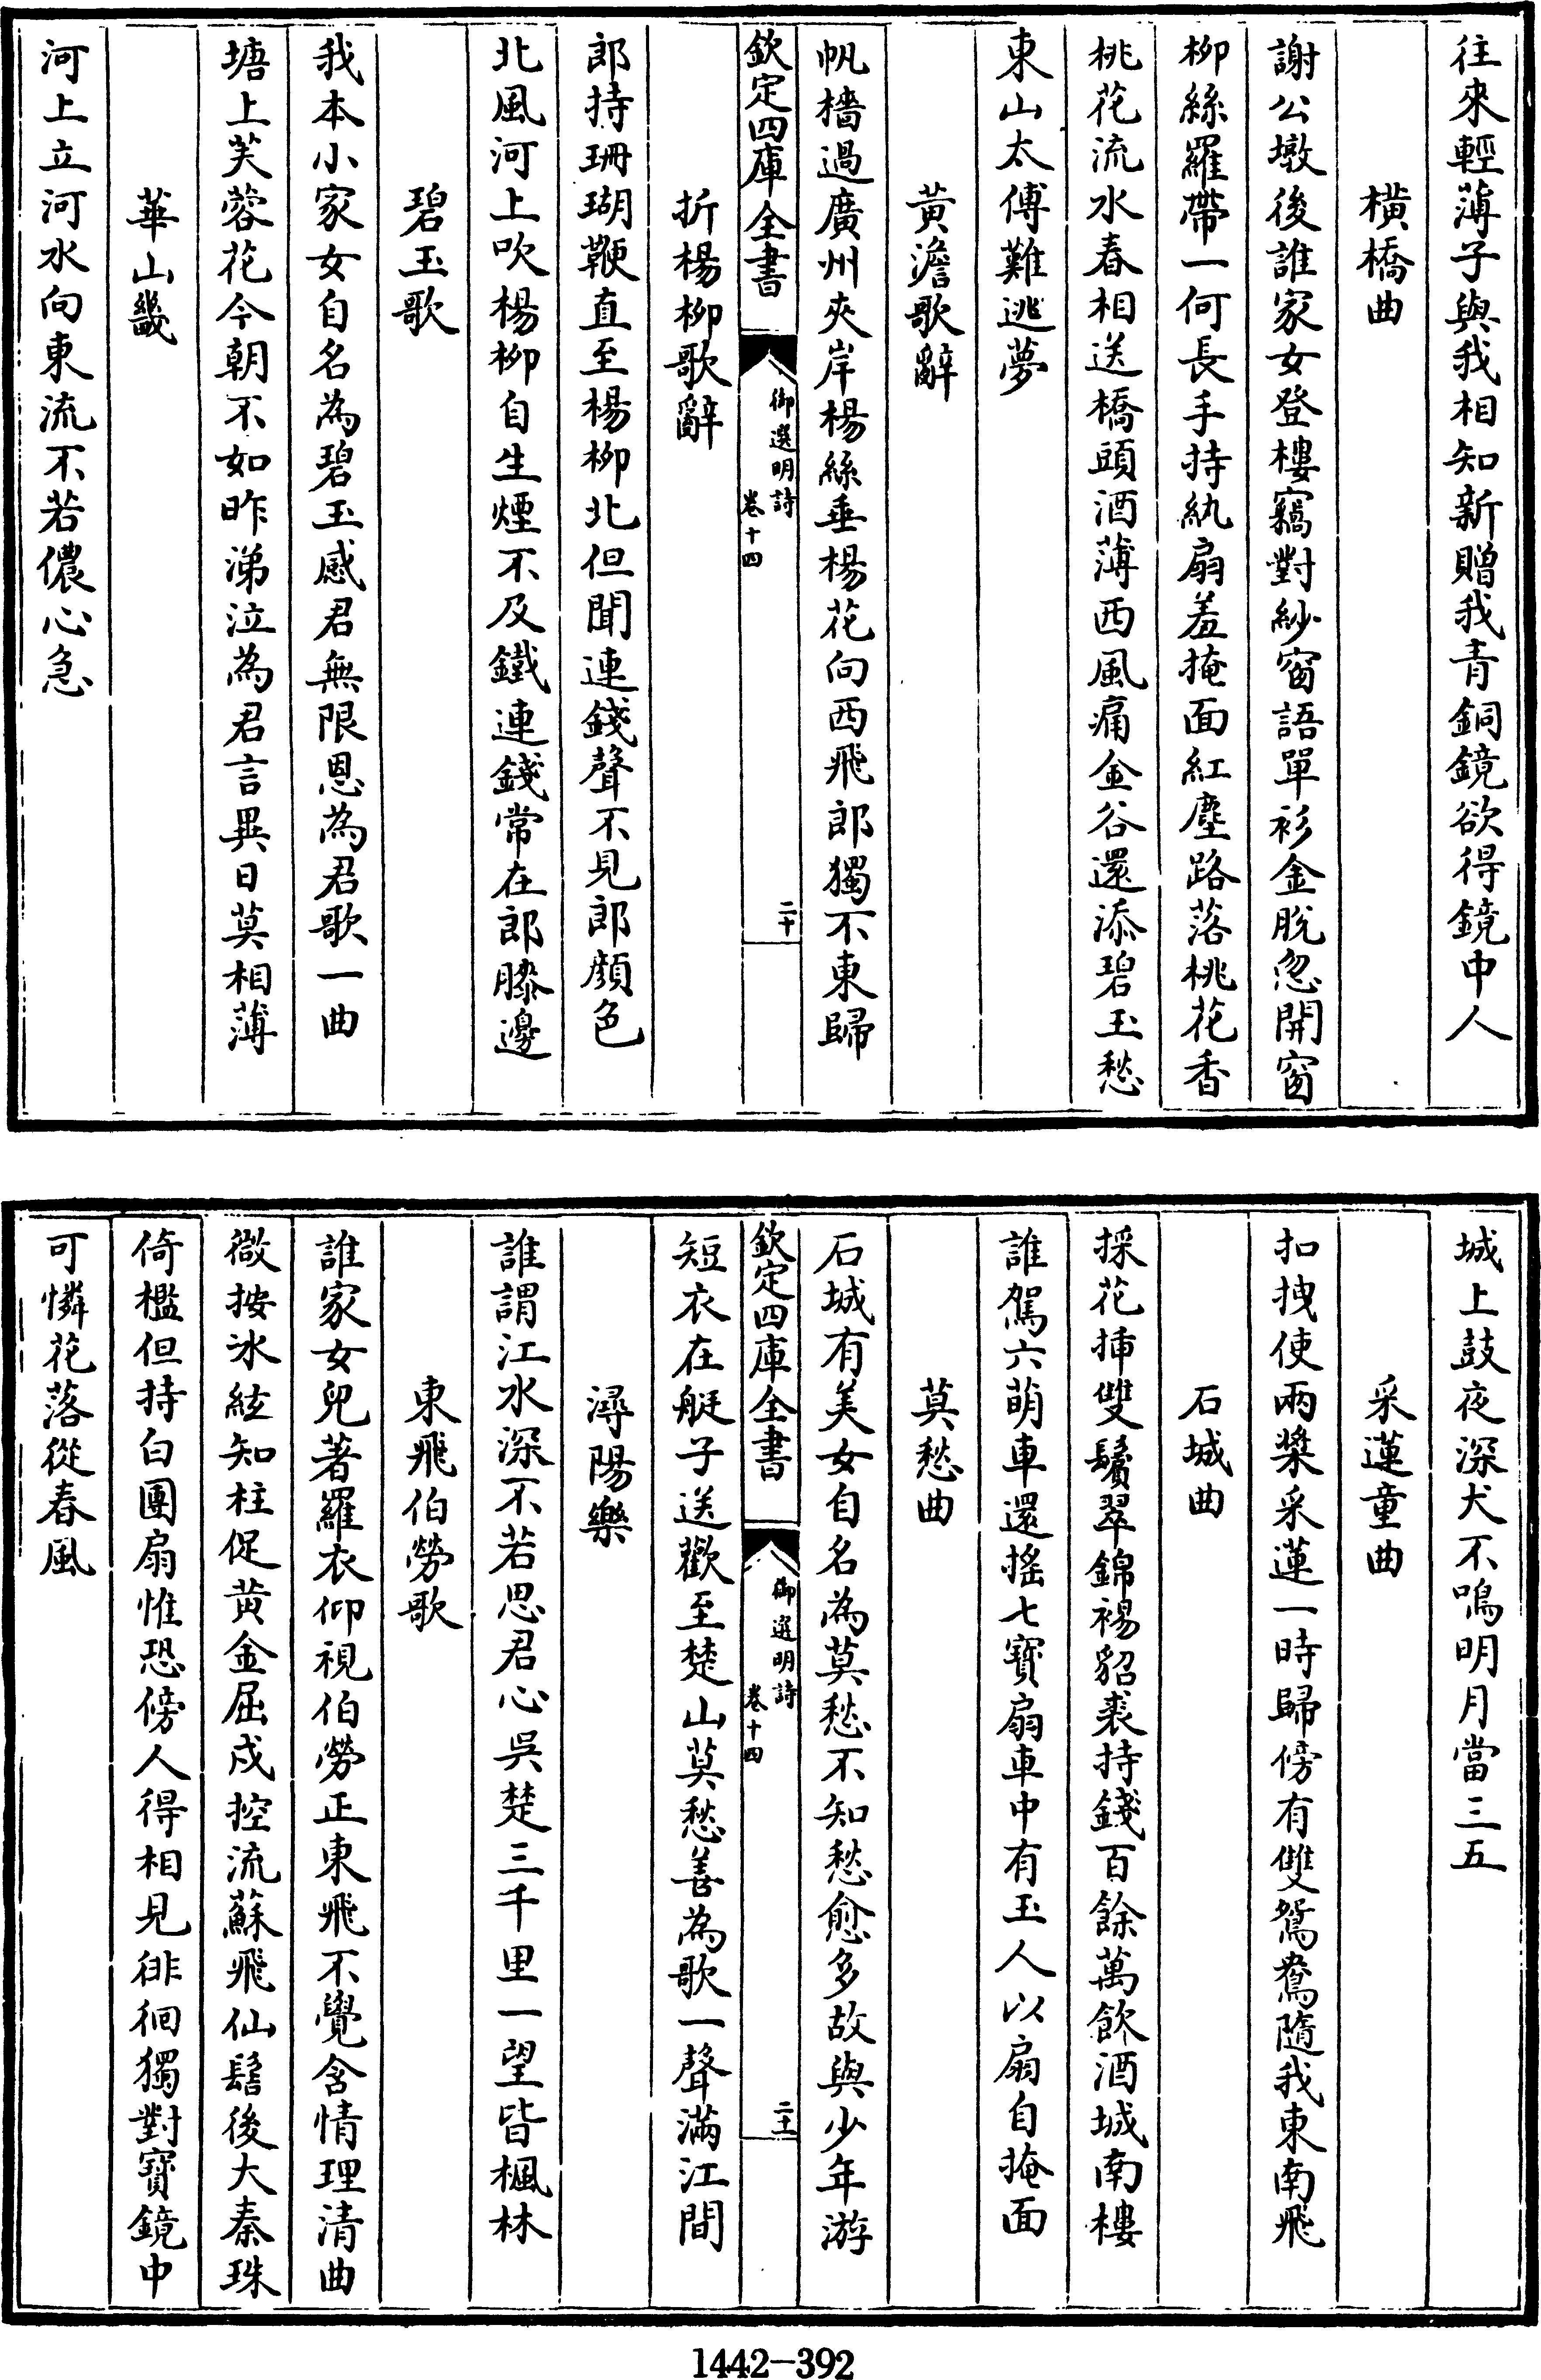 往來輕薄子與我相知新贈我青銅鏡欲得鏡中人
橫橋曲
謝公墩後誰家女登樓竊對紗窗語單衫金脫忽開窗
柳絲羅帶一何長手持紈扇羞掩面紅塵路落桃花香
桃花流水春相送橋頭酒薄西風痛金谷還添碧玉愁
東山太傅難逃夢
黃澹歌辭
帆檣過廣州夾岸楊絲垂楊花向西飛郎獨不東歸
欽定四庫全書
御選明詩
卷十四
二十
折楊柳歌辭
郎持珊瑚鞭直至楊柳北但聞連錢聲不見郎顔色
北風河上吹楊柳自生煙不及鐵連錢常在郎膝邊
碧玉歌
我本小家女自名為碧玉感君無限恩為君歌一曲
塘上芙蓉花今朝不如昨涕泣為君言異日莫相薄
華山畿
河上立河水向東流不若儂心急
城上鼓夜深犬不鳴明月當三五
采蓮童曲
扣拽使兩槳采蓮一時歸傍有雙鴛鴦隨我東南飛
石城曲
採花揷雙鬢翠錦裼貂裘持錢百餘萬飲酒城南樓
誰駕六萌車還搖七寶扇車中有玉人以扇自掩面
莫愁曲
石城有美女自名為莫愁不知愁愈多故與少年游
欽定四庫全書
御選明詩
卷十四
二十一
短衣在艇子送歡至楚山莫愁善為歌一聲滿江間
潯陽樂
誰謂江水深不若思君心吳楚三千里一望皆楓林
東飛伯勞歌
誰家女兒著羅衣仰視伯勞正東飛不覺含情理清曲
微按冰絃知柱促黃金屈戍控流蘇飛仙髻後大秦珠
倚檻但持白團扇惟恐傍人得相見徘徊獨對寶鏡中
可憐花落從春風
1442-392